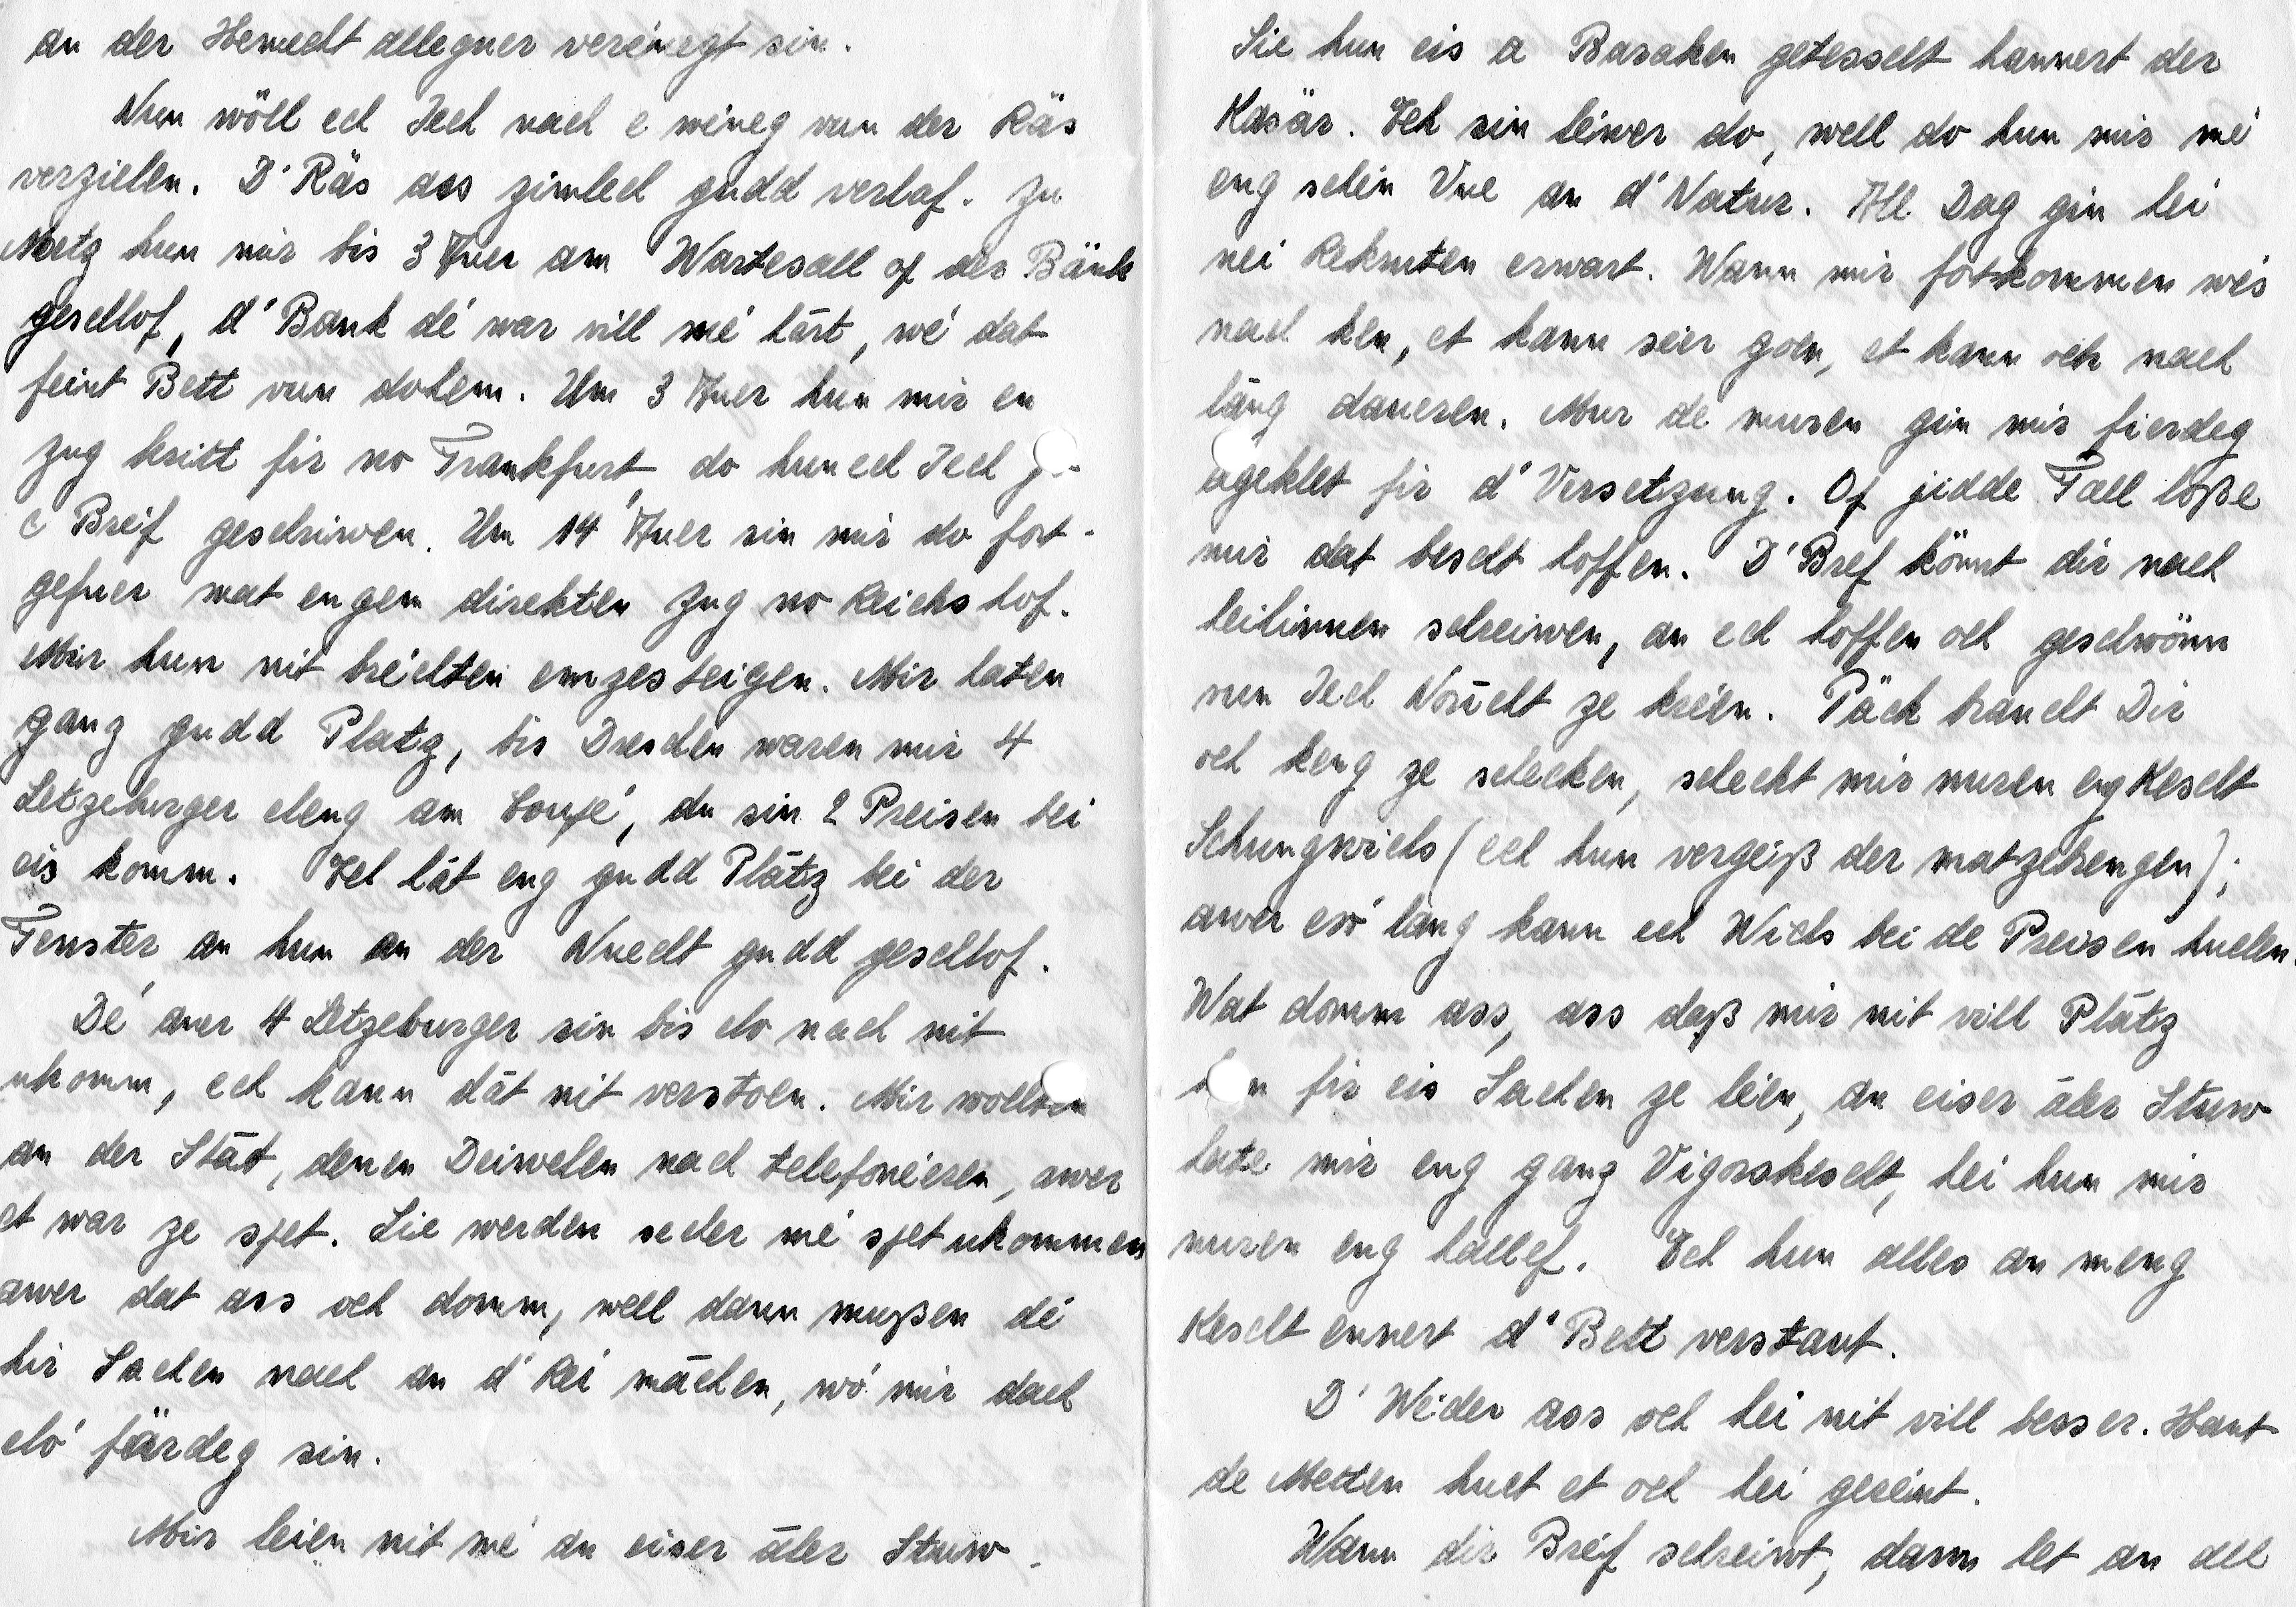 an der Hemecht alleguer veréinegt sin.
Nun wöll ech Iech nach e wineg vun der Räs
verzielen. D'Räs ass zimlech gudd verlaf. Zu
Metz hun mir bis 3 Auer am Wartesall op der Bänk
geschlof, d'Bank dé war vill mé hârt, wé dat
feint Bett vun dohem. Um 3 Auer hun mir en
Zug kritt fir no Frankfurt, do hun ech Iech
e Bréif geschriwen. Um 14 Auer sin mir do fort-
gefuer mat engem direkten Zug no Reichshof.
Mir hun nit bréichten emzesteigen. Mir haten
ganz gudd Platz, bis Dresden waren mir 4
Letzeburger eleng am Coupé, du sin 2 Preisen bei
eis komm. Ech hât eng gudd Plâtz bei der
Fenster, an hun an der Nuecht gudd geschlof.
Dé aner 4 Letzeburger sin bis elo nach nit
ukomm, ech kann dât nit verstoen. Mir wollten
an der Stât, denen Deiwelen nach telefonéieren, awer
et war ze spet. Sie werden secher mé spet ukommen
awer dat ass och domm, well dann mußen dé
hir Sachen nach an d'Rei mâchen, wó mir dach
elo' färdeg sin.
Mir leien nit mé an eiser âler Stuw.
Sie hun eis a Baraken getesselt hannert der
Kasär. Ech sin léiwer do, well do hun mir mé
eng schéin Vue an d'Natur. All Dag gin hei
nei Rekruten erwart. Wann mir fortkommen wés
nach ken, et kann séier goen, et kann och nach
lâng daueren. Mur de muren gin mir fierdeg
ageklet fir d'Versetzung. Op jidde Fall loße
mir dat bescht hoffen. D'Bref könnt dir nach
heihinnen schreiwen, an ech hoffen och geschwönn
vun Iech Noricht ze kréien. Päck braucht Dir
och keng ze schecken, scheckt mir nuren eng Kescht
Schungwichs (ech hun vergeiß der matzebrengen);
awer esó lâng kann ech Wichs bei de Preisen huelen.
Wat domm ass, ass daß mir nit vill Plâtz
hun fir eis Sachen ze léien, an eiser âler Stuw
hate mir eng ganz Vigorskescht, hei hun mir
nuren eng hallef. Ech hun alles an meng
Kescht ennert d'Bett verstaut.
D'Wéder ass och hei nit vill besser. Haut
de Metten huet et och hei geréint.
Wann dir Bréif schreiwt, dann let an all